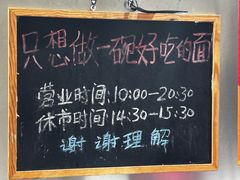 只想做一碗好吃的面
营业时间:10:00-20:30
休市时间:14:30-15:30
谢谢理解